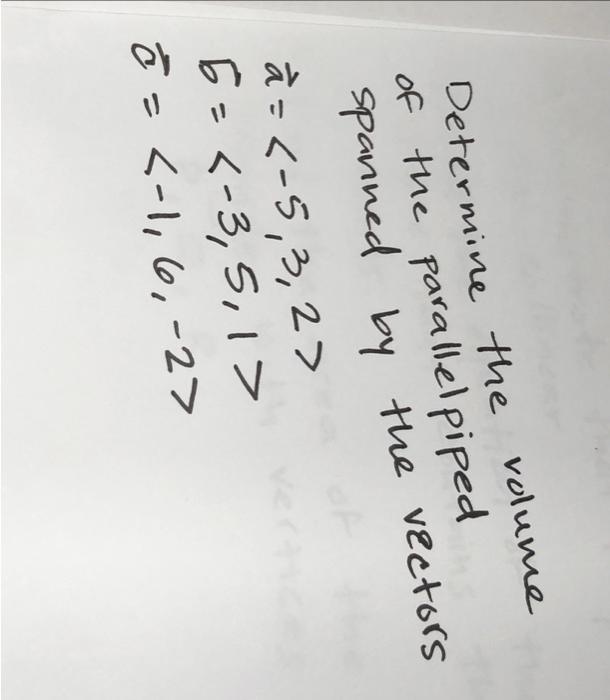 Determine the volume
of the parallelpiped
spanned by the vectors
a⃗ = <-5, 3, 2>
b⃗ = <-3, 5, 1>
c⃗ = <-1, 6, -2>